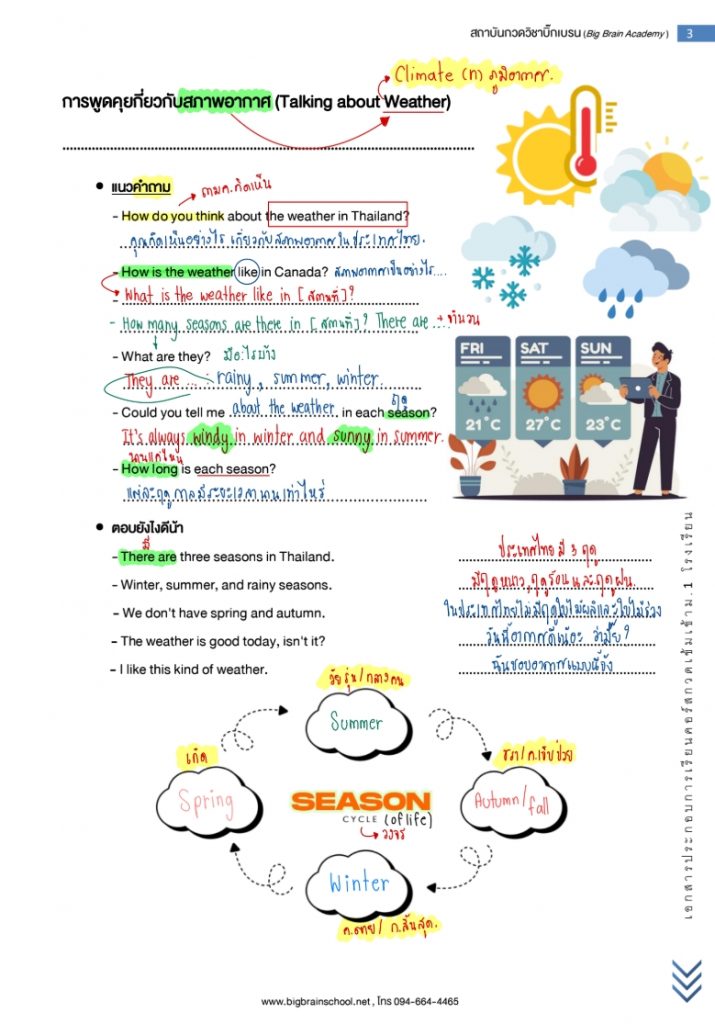 สถาบันกวดวิชาบิ๊กเบรน (Big Brain Academy) 3
Climate (n) ภูมิอากาศ.
การพูดคุยเกี่ยวกับสภาพอากาศ (Talking about Weather)
แนวคำถาม
ถามค.คิดเห็น
- How do you think about the weather in Thailand?
คุณคิดเห็นอย่างไร เกี่ยวกับสภาพอากาศในประเทศไทย.
- How is the weather like in Canada? สภาพอากาศเป็นอย่างไร....
- What is the weather like in [สถานที่]?
- How many seasons are there in [สถานที่]? There are ... + จำนวน
- What are they? มีอะไรบ้าง
They are ... : rainy, summer, winter.
ฤดู
- Could you tell me about the weather in each season?
It's always windy in winter and sunny in summer.
นานแค่ไหน
- How long is each season?
แต่ละฤดูกาลมีระยะเวลานานเท่าไหร่
FRI SAT SUN
21°C 27°C 23°C
ตอบยังไงดีน้า
มี
- There are three seasons in Thailand. ประเทศไทยมี 3 ฤดู
- Winter, summer, and rainy seasons. มีฤดูหนาว, ฤดูร้อน และฤดูฝน.
- We don't have spring and autumn. ในประเทศไทยไม่มีฤดูใบไม้ผลิและใบไม้ร่วง
- The weather is good today, isn't it? วันนี้อากาศดีเนอะ ว่ามั้ย?
- I like this kind of weather. ฉันชอบอากาศแบบนี้จัง
วัยรุ่น/กลางคน
Summer
เกิด
Spring
ชรา/ค.เจ็บป่วย
Autumn/fall
SEASON
CYCLE (of life)
วงจร
Winter
ค.ตาย/ก.สิ้นสุด.
เอกสารประกอบการเรียนคอร์สกวดเข้มเข้าม.1 โรงเรียน
www.bigbrainschool.net , โทร 094-664-4465